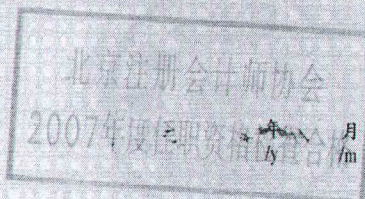 北京注册会计师协会
2007年度任职资格检查合格
年 月
/y /m